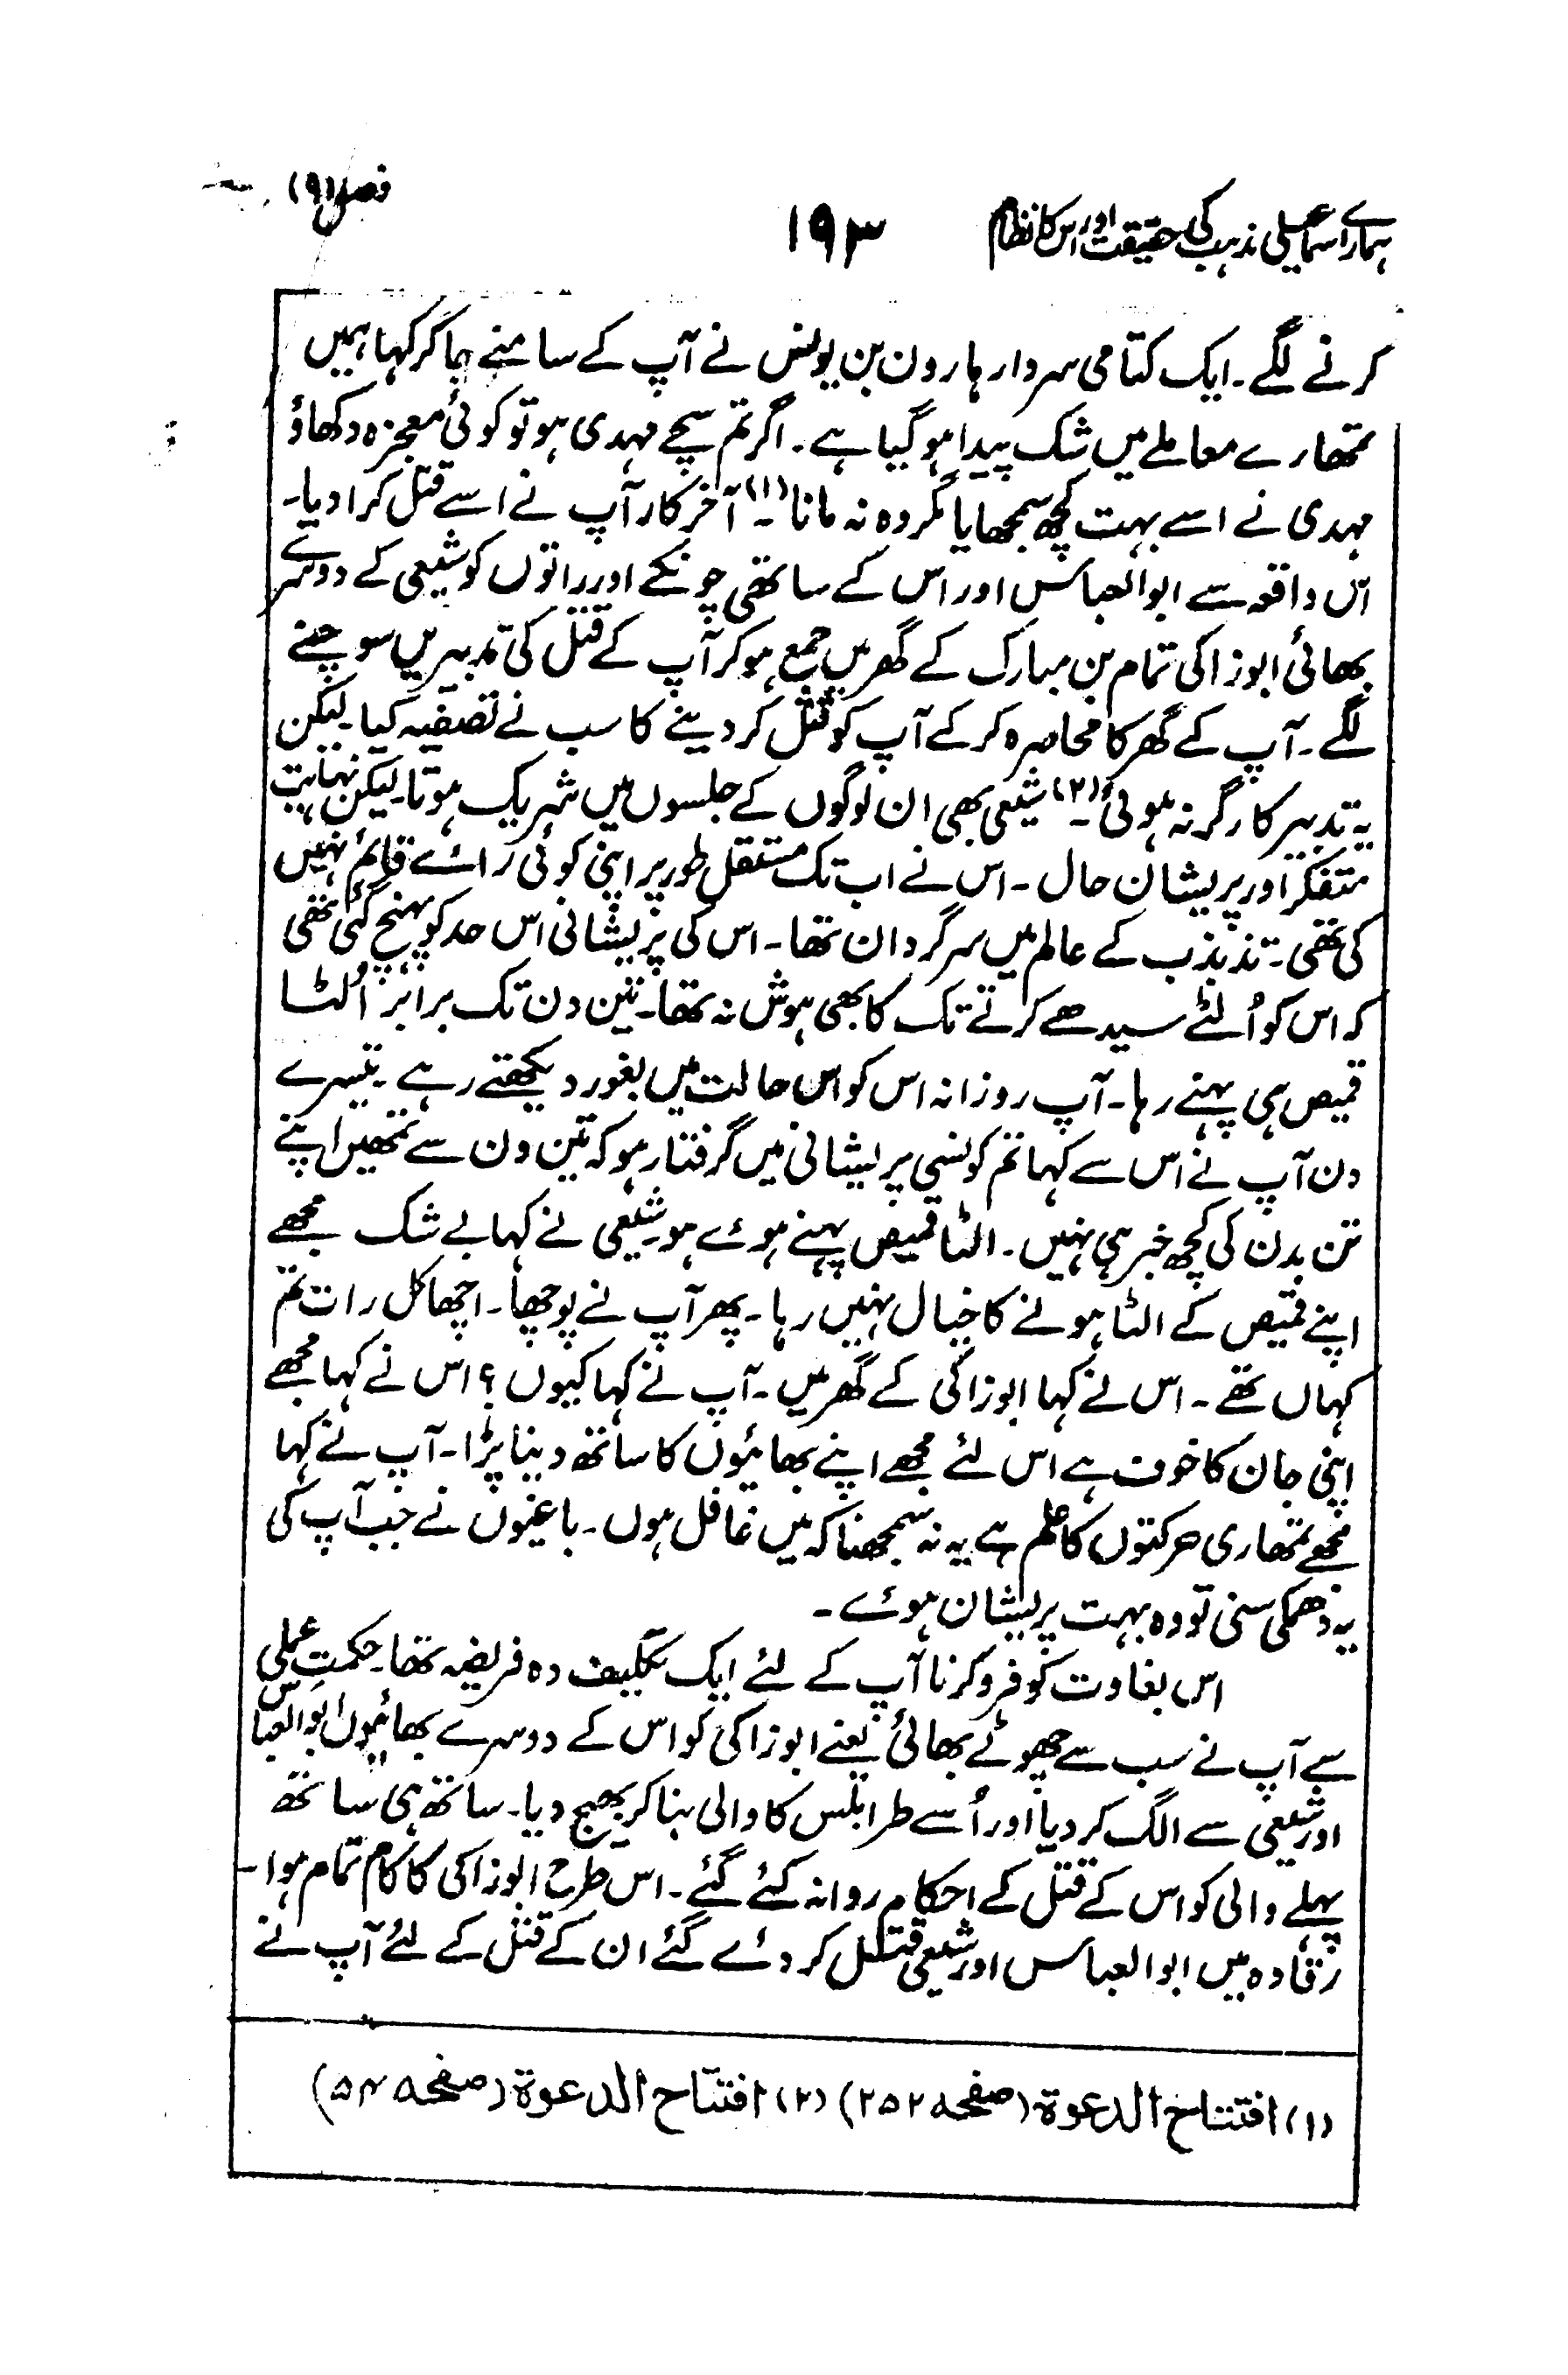 ہمارے اسماعیلی مذہب کی حقیقت اور اس کا نظام ۱۹۳ فصل (۹)
کرنے لگے۔ ایک کتامی سردار ہارون بن یونس نے آپ کے سامنے جا کر کہا ہمیں
تمھارے معاملے میں شک پیدا ہو گیا ہے۔ اگر تم سچے مہدی ہو تو کوئی معجزہ دکھاؤ
مہدی نے اسے بہت کچھ سمجھایا مگر وہ نہ مانا۔(۱) آخر کار آپ نے اسے قتل کرا دیا۔
اس واقعہ سے ابوالعباس اور اس کے ساتھی چونکے اور راتوں کو شیعی کے دوسرے
بھائی ابوزاکی تمام بن مبارک کے گھر میں جمع ہو کر آپ کے قتل کی تدبیریں سوچنے
لگے۔ آپ کے گھر کا محاصرہ کر کے آپ کو قتل کر دینے کا سب نے تصفیہ کیا۔ لیکن
یہ تدبیر کارگر نہ ہوئی۔(۲) شیعی بھی ان لوگوں کے جلسوں میں شریک ہوتا۔ لیکن نہایت
متفکر اور پریشان حال۔ اس نے اب تک مستقل طور پر اپنی کوئی رائے قائم نہیں
کی تھی۔ تذبذب کے عالم میں سرگردان تھا۔ اس کی پریشانی اس حد کو پہنچ گئی تھی
کہ اس کو اُلٹے سیدھے کرتے تک کا بھی ہوش نہ تھا۔ تین دن تک برابر اُلٹا
قمیص ہی پہنے رہا۔ آپ روزانہ اس کو اس حالت میں بغور دیکھتے رہے۔ تیسرے
دن آپ نے اس سے کہا تم کونسی پریشانی میں گرفتار ہو کہ تین دن سے تمھیں اپنے
تن بدن کی کچھ خبر ہی نہیں۔ الٹا قمیص پہنے ہوئے ہو۔ شیعی نے کہا بے شک مجھے
اپنے قمیص کے الٹا ہونے کا خیال نہیں رہا۔ پھر آپ نے پوچھا۔ اچھا کل رات تم
کہاں تھے۔ اس نے کہا ابوزاکی کے گھر میں۔ آپ نے کہا کیوں؟ اس نے کہا مجھے
اپنی جان کا خوف ہے اس لئے مجھے اپنے بھائیوں کا ساتھ دینا پڑا۔ آپ نے کہا
مجھے تمھاری حرکتوں کا علم ہے یہ نہ سمجھنا کہ میں غافل ہوں۔ باغیوں نے جب آپ کی
یہ دھمکی سنی تو وہ بہت پریشان ہوئے۔
اس بغاوت کو فرو کرنا آپ کے لئے ایک تکلیف دہ فریضہ تھا۔ حکمتِ عملی
سے آپ نے سب سے چھوٹے بھائی یعنے ابوزاکی کو اس کے دوسرے بھائیوں ابوالعباس
اور شیعی سے الگ کر دیا اور اُسے طرابلس کا والی بنا کر بھیج دیا۔ ساتھ ہی ساتھ
پہلے والی کو اس کے قتل کے احکام روانہ کئے گئے۔ اس طرح ابوزاکی کا کام تمام ہوا۔
رقادہ میں ابوالعباس اور شیعی قتل کر دئے گئے ان کے قتل کے لئے آپ نے
(۱) افتتاح الدعوۃ (صفحہ ۲۵۲) (۲) افتتاح الدعوۃ (صفحہ ۵۴)